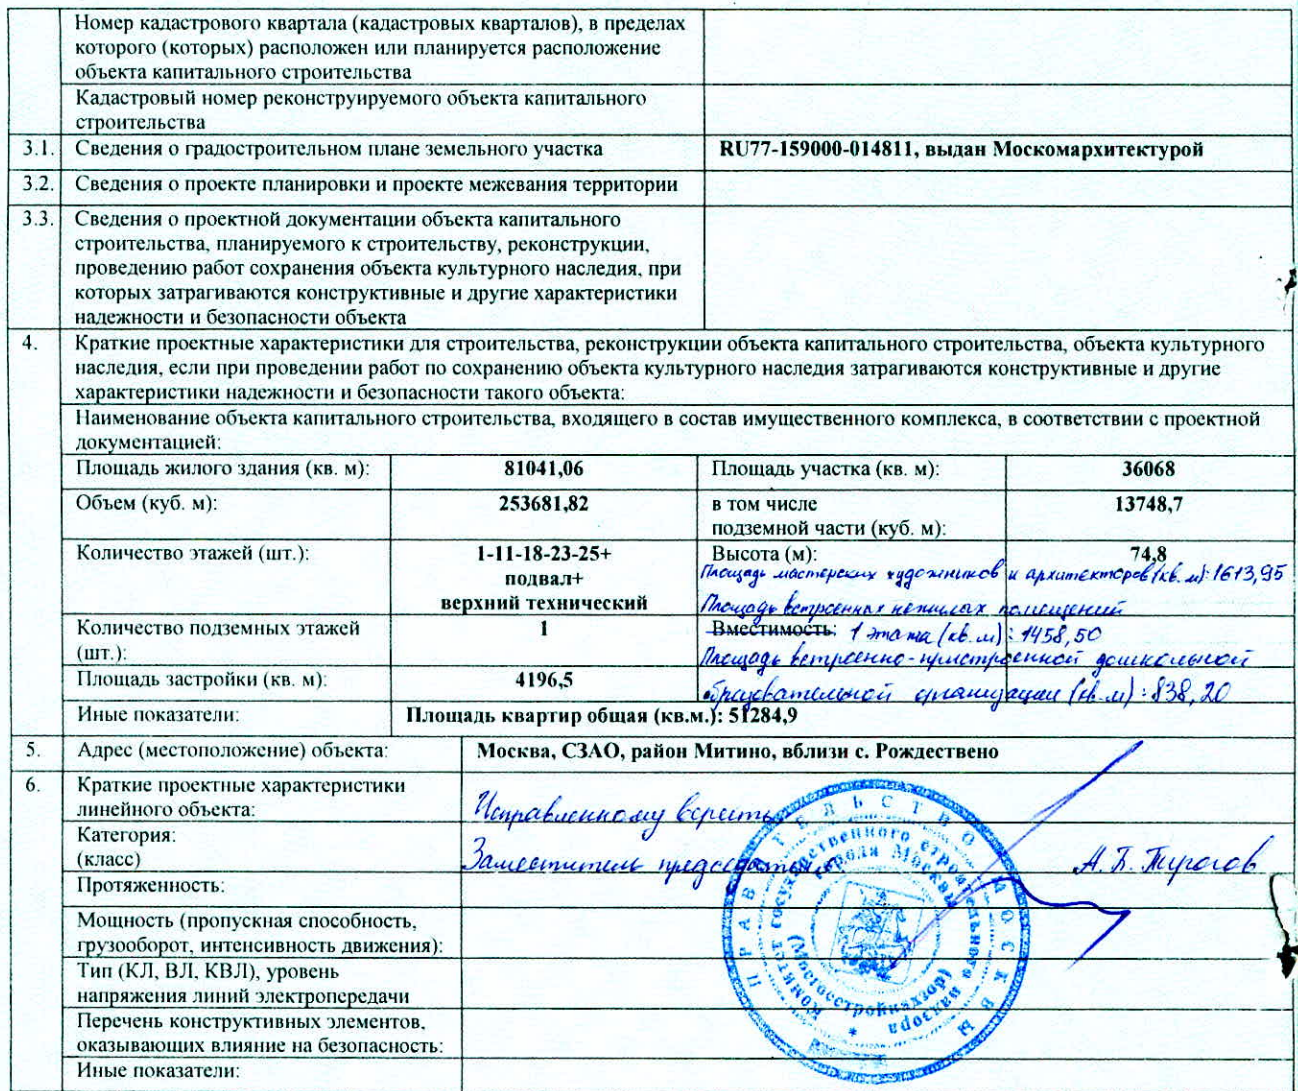 Номер кадастрового квартала (кадастровых кварталов), в пределах
которого (которых) расположен или планируется расположение
объекта капитального строительства
Кадастровый номер реконструируемого объекта капитального
строительства
3.1. Сведения о градостроительном плане земельного участка RU77-159000-014811, выдан Москомархитектурой
3.2. Сведения о проекте планировки и проекте межевания территории
3.3. Сведения о проектной документации объекта капитального
строительства, планируемого к строительству, реконструкции,
проведению работ сохранения объекта культурного наследия, при
которых затрагиваются конструктивные и другие характеристики
надежности и безопасности объекта
4. Краткие проектные характеристики для строительства, реконструкции объекта капитального строительства, объекта культурного
наследия, если при проведении работ по сохранению объекта культурного наследия затрагиваются конструктивные и другие
характеристики надежности и безопасности такого объекта:
Наименование объекта капитального строительства, входящего в состав имущественного комплекса, в соответствии с проектной
документацией:
Площадь жилого здания (кв. м): 81041,06 Площадь участка (кв. м): 36068
Объем (куб. м): 253681,82 в том числе
подземной части (куб. м): 13748,7
Количество этажей (шт.): 1-11-18-23-25+
подвал+
верхний технический
Высота (м): 74,8
Площадь мастерских художников и архитекторов (кв. м): 1613,95
Площадь встроенных нежилых помещений
Количество подземных этажей
(шт.): 1
Вместимость: 1 этажа (кв. м): 1458,50
Площадь встроенно-пристроенной дошкольной
Площадь застройки (кв. м): 4196,5
образовательной организации (кв.м): 838,20
Иные показатели: Площадь квартир общая (кв.м.): 51284,9
5. Адрес (местоположение) объекта: Москва, СЗАО, район Митино, вблизи с. Рождествено
6. Краткие проектные характеристики
линейного объекта:
Исправленному верить
Категория:
(класс)
Заместитель председателя А.Б. Пирогов
Протяженность:
Мощность (пропускная способность,
грузооборот, интенсивность движения):
Тип (КЛ, ВЛ, КВЛ), уровень
напряжения линий электропередачи
Перечень конструктивных элементов,
оказывающих влияние на безопасность:
Иные показатели:
ПРАВИТЕЛЬСТВО МОСКВЫ
Комитет государственного строительного надзора
города Москвы
(Мосгосстройнадзор)